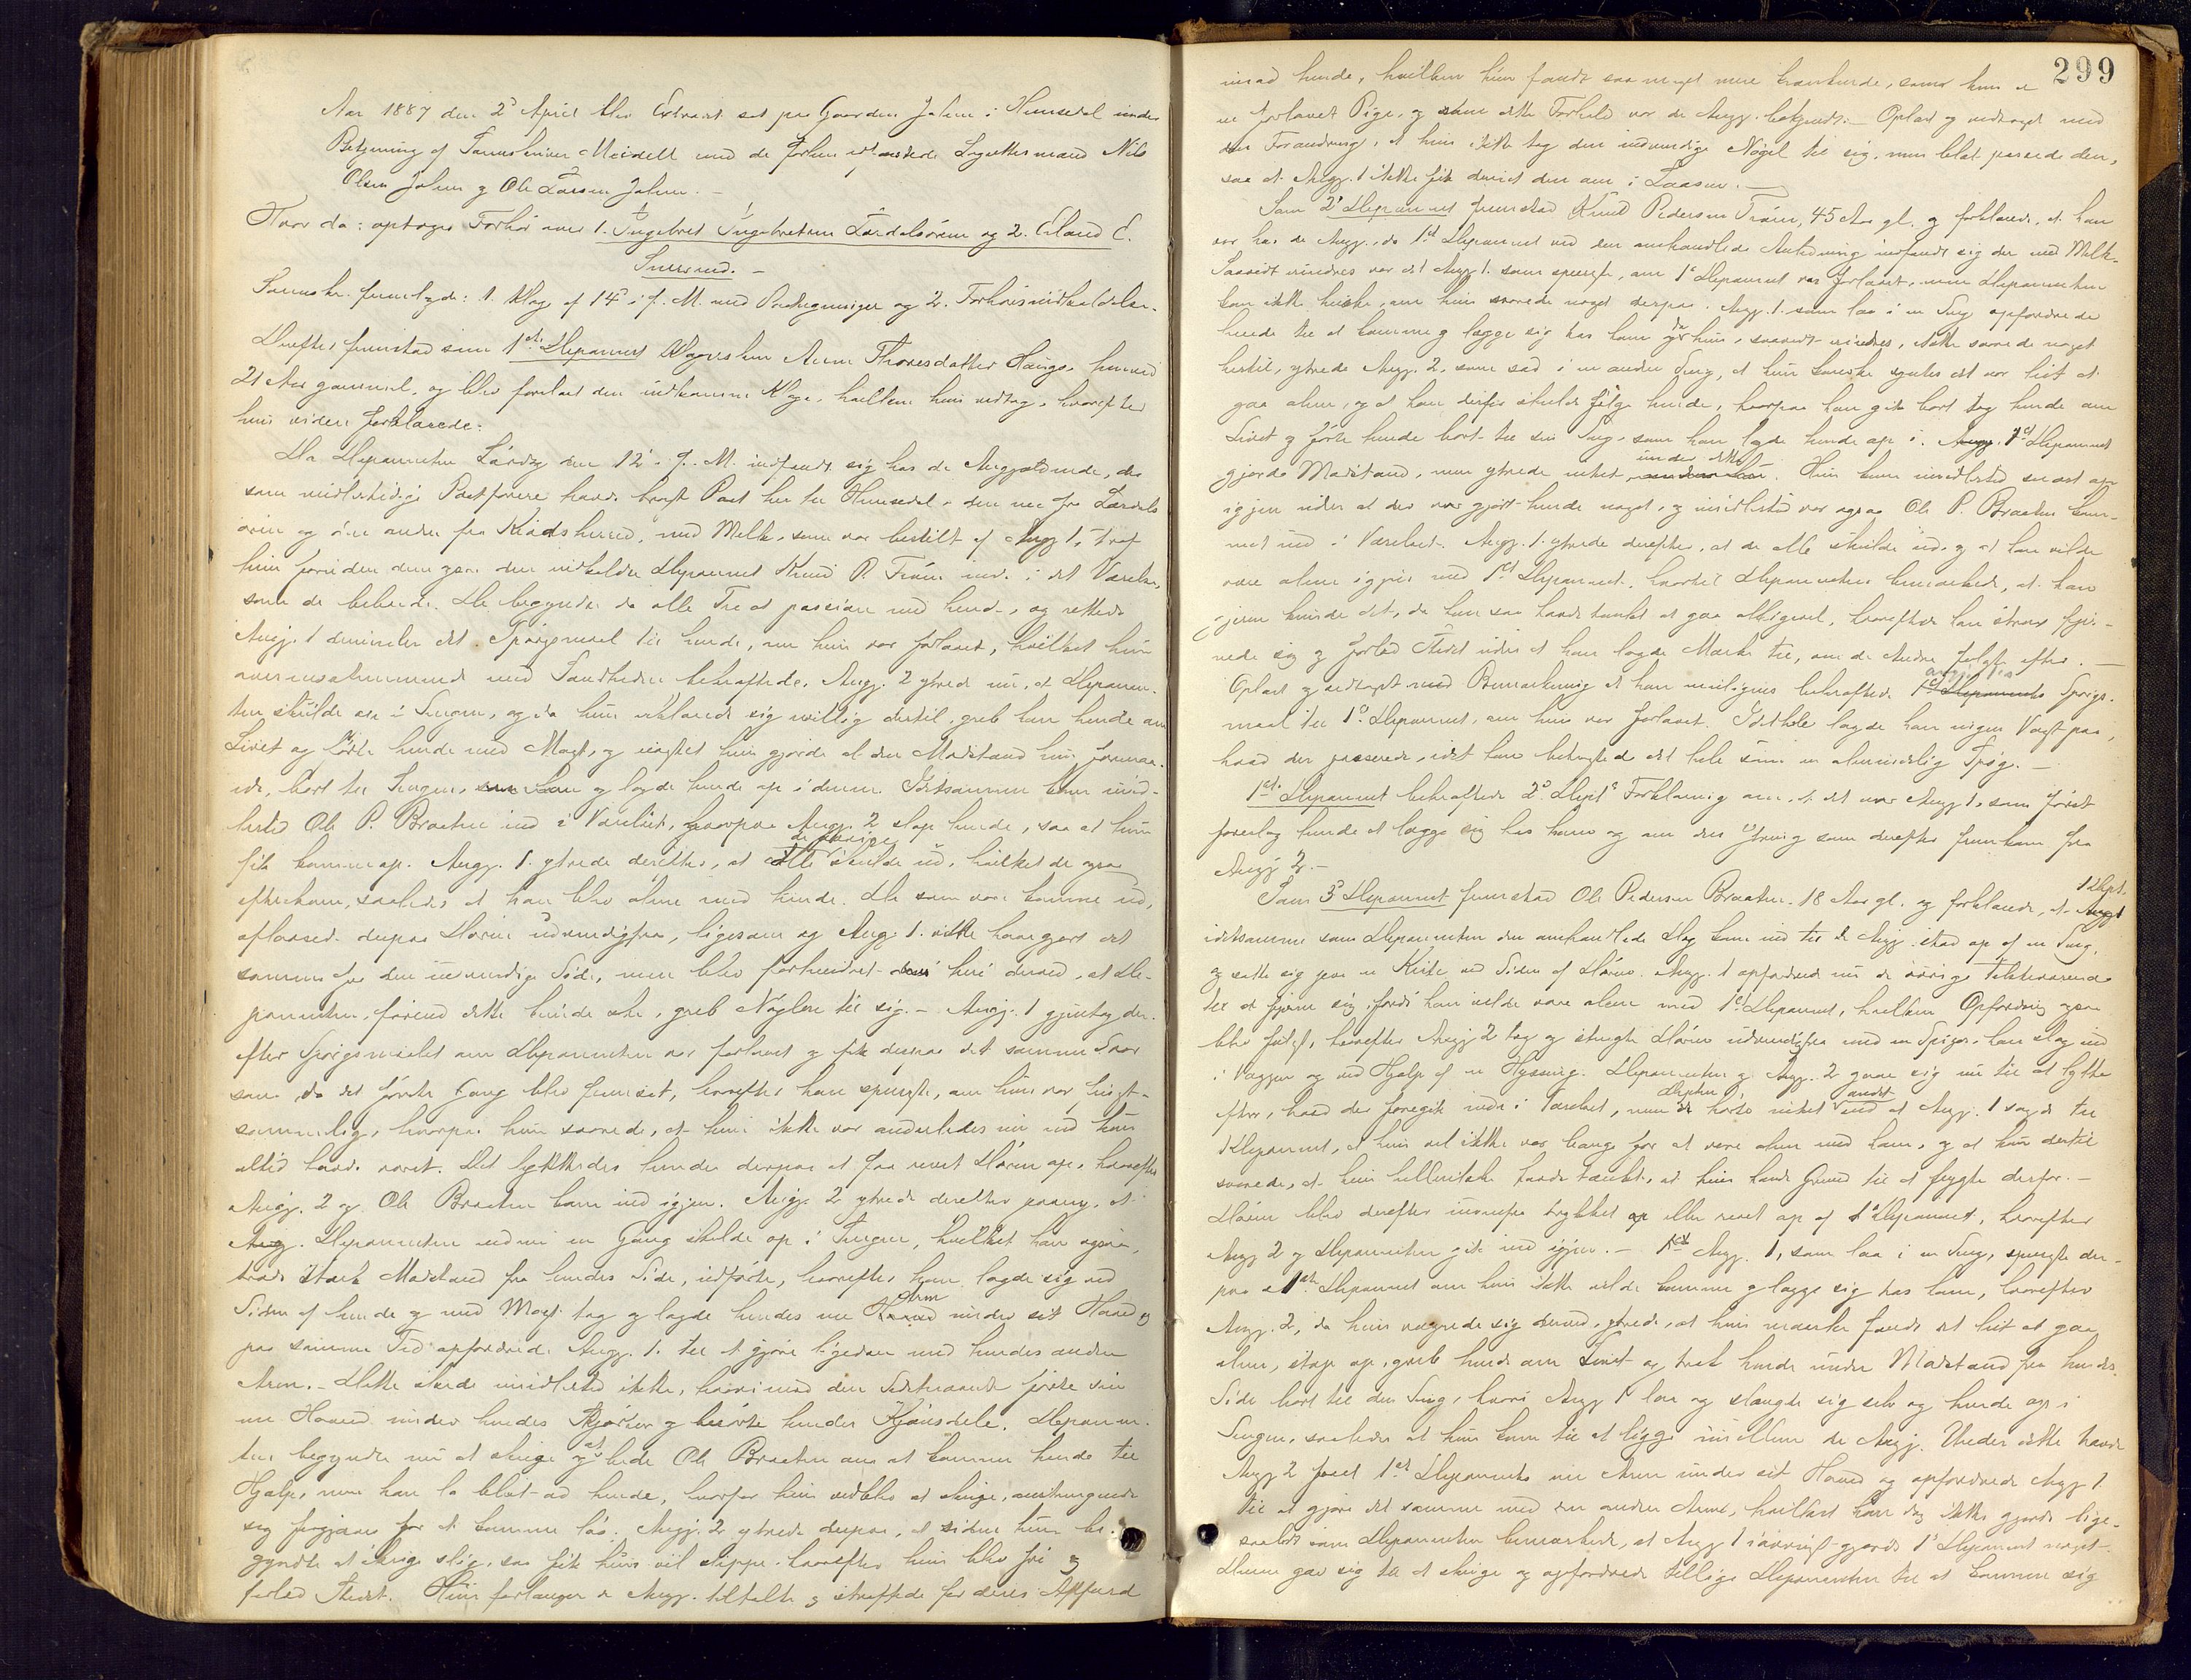 Aar 1887 den 2den April blev Extraret sat paa Gaarden Jolun i Hemsedal under
Betjening af Sorenskriver Meidell med de forhen edfæstede Lagrettesmænd Nils
Olsen Jolun og Ole Larsen Jolun. –
Hvor da: optoges Forhør over 1. Ingebret Ingebretsen Lærdalsøren og 2. Eiland E.
Sorenskr. fremlagde: 1. Klage af 14de i f. M. med Paategninger og 2. Forhørsindkaldelse.
Derefter fremstod som 1ste Deponent Klagersken Anne Thoresdatter Hauge,
21 Aar gammel, og blev forelæst den indkomne Klage, hvilken hun vedtog, hvorefter
hun videre forklarede:
Da Deponenten Lørdag den 12te i f. M. indfandt sig hos de Angjældende, der
som midlertidige Postførere havde bragt Post her til Hemsedal, den ene fra Lærdals
øren og den anden fra Krødsherred, med Melk, som var bestilt af Angj. 1, traf
hun foruden dem ogsaa den indkaldte Deponent Knud P. Trøim inde i det Værelse,
som de beboede. De begyndte da alle Tre at passiare med hende, og rettede
Angj. 1 derunder det Spørgsmaal til hende, om hun var forlovet, hvilket hun
overensstemmende med Sandheden bekræftede. Angj. 2 ytrede nu, at Deponen-
ten skulde op i Sengen, og da hun erklærede sig uvillig dertil, greb han hende om
Livet og førte hende med Magt, og uagtet hun gjorde al den Modstand hun formaa-
ede, bort til Sengen, og lagde hende op i denne. Idetsamme kom imid-
lertid Ole P. Braaten ind i Værelset, hvorpaa Angj. 2 slap hende, saa at hun
fik komme op. Angj. 1 ytrede derefter, at de øvrige skulde ud, hvilket de ogsaa
efterkom, saaledes at han blev alene med hende. De som var komne ud,
aflaasede derpaa Døren udvendigfra, ligesom og Angj. 1 vilde have gjort det
samme fra den indvendige Side, men blev forhindret heri derved, at De-
ponenten, førend dette kunde ske, greb Nøglen til sig. – Angj. 1 gjentog der-
efter Spørgsmaalet om Deponenten var forlovet og fik derpaa det samme Svar
som da det første Gang blev fremsat, hvorefter han spurgte, om hun var frugt-
sommelig, hvorpaa hun svarede, at hun ikke var anderledes nu end hun
altid havde været. Det lykkedes hende derpaa at faa revet Døren op, hvorefter
Angj. 2 og Ole Braaten kom ind igjen. Angj. 2 ytrede derefter paany, at
Deponenten endnu en Gang skulde op i Sengen, hvilket han ogsaa,
trods stærk Modstand fra hendes Side, udførte, hvorefter han lagde sig ved
Siden af hende og med Magt tog og lagde hendes ene Arm under sit Hoved og
paa samme Tid opfordrede Angj. 1 til at gjøre ligedan med hendes anden
Arm. – Dette skede imidlertid ikke, hvorimod den Sidstnævnte førte sin
ene Haand under hendes Skjørter og berørte hendes Kjønsdele. Deponen-
ten begyndte nu at skrige og at bede Ole Braaten om at komme hende til
Hjælp, men han lo blot ad hende, hvorfor hun vedblev at skrige, anstrengende
sig forgjæves for at komme løs. Angj. 2 ytrede derpaa, at siden hun be-
gyndte at skrige slig, saa fik hun vel slippe, hvorefter hun blev fri og
forlod Stedet. Hun forlanger de Angj. tiltalte og straffede for deres Adfærd
299
imod hende, hvilken hun fandt saa meget mere krænkende, som hun er
en forlovet Pige, og dette Forhold var de Angj. bekjendt. – Oplæst og vedtaget med
den Forandring, at hun ikke tog den indvendige Nøgel til sig, men blot passede den,
saa at Angj. 1 ikke fik dreiet den om i Laasen. –
Som 2den Deponent fremstod Knud Pedersen Trøim, 45 Aar gl. og forklarede, at han
var hos de Angj. da 1ste Deponent ved den omhandlede Anledning indfandt sig der med Melk.
Saavidt erindres var det Angj. 1 som spurgte, om 1ste Deponent var forlovet, men Deponenten
kan ikke huske, om hun svarede noget derpaa. Angj. 1 som laa i en Seng opfordrede
hende til at komme og lægge sig hos ham og da hun, saavidt erindres, ikke svarede noget
hertil, ytrede Angj. 2, som sad i en anden Seng, at hun kanske syntes det var leit at
gaa alene, og at han derfor skulde følge hende, hvorpaa han gik bort tog hende om
Livet og førte hende bort til sin Seng, som han lagde hende op i. 1ste Deponent
gjorde Modstand, men ytrede intet under dette. Hun kom imidlertid snart op
igjen uden at der var gjort hende noget, og imidlertid var ogsaa Ole P. Braaten kom-
met ind i Værelset. Angj. 1 ytrede derefter, at de alle skulde ud, og at han vilde
være alene igjen med 1ste Deponent, hvortil Deponenten bemærkede, at han
gjerne kunde det, da han saa havde tænkt at gaa alligevel, hvorefter han strax fjer-
nede sig og forlod Stedet uden at han lagde Mærke til, om de Andre fulgte efter. –
Oplæst og vedtaget med Bemærkning at han muligens bekræftede Spørgs-
maal til 1ste Deponent, om hun var forlovet. Idethele lagde han ingen Vægt paa,
hvad der passerede, idet han betragtede det hele som en almindelig Spøg. –
1ste Deponent bekræftede 2den Depts Forklaring om, at det var Angj. 1, som først
foreslog hende at lægge sig hos ham og om den Ytring som derefter fremkom fra
Angj. 2. –
Som 3die Deponent fremstod Ole Pedersen Braaten, 18 Aar gl. og forklarede, at 1 Dept.
idetsamme som Deponenten den omhandlede Dag kom ind til de Angj. stod op af en Seng,
og satte sig paa en Kiste ved Siden af Døren. Angj. 1 opfordrede nu de øvrige Tilstedeværende
til at fjerne sig, fordi han vilde være alene med 1ste Deponent, hvilken Opfordring ogsaa
blev fulgt, hvorefter Angj. 2 tog og stængte Døren udvendigfra med en Spiger, han slog ind
i Væggen og ved Hjælp af en Hyssing. Deponenten og Angj. 2 gav sig nu til at lytte
efter, hvad der foregik inde i Værelset, men Depten hørte intet andet end at Angj. 1 sagde til
Deponent, at hun vel ikke var bange for at være alene med ham, og at hun dertil
svarede, at hun hellerikke havde tænkt, at hun havde Grund til at frygte derfor. –
Døren blev derefter indenfra trykket op eller revet op af 1ste Deponent, hvorefter
Angj. 2 og Deponenten gik ind igjen. – Angj. 1, som laa i en Seng, spurgte der-
paa 1ste Deponent om hun ikke vilde komme og lægge sig hos ham, hvorefter
Angj. 2, da hun vægrede sig derved, ytrede, at hun maaske fandt det leit at gaa
alene, stod op, greb hende om Livet og trak hende under Modstand fra hendes
Side bort til den Seng, hvori Angj. 1 laa og slængte sig selv og hende op i
Sengen, saaledes at hun kom til at ligge imellem de Angj. Under dette havde
Angj. 2 faaet 1ste Deponents ene Arm under sit Hoved og opfordrede Angj. 1
til at gjøre det samme med den anden Arm, hvilket han dog ikke gjorde lige-
saalidt som Deponenten bemærkede, at Angj. 1 iøvrigt gjorde 1ste Deponent noget.
Denne gav sig til at skrige og opfordrede tillige Deponenten til at komme sig